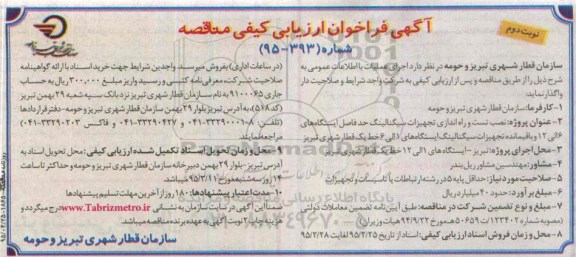 آگهی فراخوان ارزیابی کیفی مناقصه
نوبت دوم
شماره (۳۹۳-۹۵)
سازمان قطار شهری تبریز و حومه در نظر دارد اجرای عملیات با اطلاعات عمومی به
شرح ذیل را از طریق مناقصه و پس از ارزیابی کیفی به شرکت واجد شرایط و صلاحیت دار
واگذار نماید:
۱- کارفرما: سازمان قطار شهری تبریز و حومه
۲- عنوان پروژه: نصب تست و راه اندازی تجهیزات سیگنالینگ حد فاصل ایستگاه‌های
۶ الی ۱۲ و باقیمانده تجهیزات سیگنالینگ ایستگاه‌های ۱ الی ۶ خط یک قطار شهری تبریز
۳- محل اجرای پروژه: تبریز - ۱۲ الی ۱ خط
۴- مشاور: مهندسین مشاور ریل بندر
۵- صلاحیت مورد نیاز: حداقل پایه ۵ در رشته ارتباطات یا تاسیسات و تجهیزات
۶- مبلغ برآورد: حدود ۴۰ میلیارد ریال
۷- مبلغ و نوع تضمین شرکت در مناقصه: طبق آیین نامه تضمین معاملات دولتی
(مصوبه شماره ۱۲۳۴۰۲/ت۵۰۶۵۹ه مورخ ۹۴/۹/۲۲ هیات وزیران)
۸- محل و زمان فروش اسناد ارزیابی کیفی: اسناد از تاریخ ۹۵/۲/۲۵ لغایت ۹۵/۲/۲۸
(در ساعات اداری) بفروش میرسد. واجدین شرایط جهت خرید اسناد با ارائه گواهینامه
صلاحیت شرکت، معرفی نامه کتبی و رسید واریز مبلغ ۳۰۰,۰۰۰ ریال به حساب
جاری ۹۱۰۰۰۶۵ به نام سازمان قطار شهری تبریز نزد بانک سپه شعبه ۲۹ بهمن تبریز
(کد ۵۱۸)، به آدرس تبریز بلوار ۲۹ بهمن سازمان قطار شهری تبریز و حومه - دفتر قراردادها
(تلفن ۸-۰۴۱-۳۳۲۹۰۰۰۱ و ۰۴۱-۳۳۲۹۰۴۲۷ و فاکس ۰۴۱-۳۳۲۹۰۲۰۳)
مراجعه نمایند.
۹- محل و زمان تحویل اسناد تکمیل شده ارزیابی کیفی: محل تحویل اسناد به
آدرس تبریز - بلوار ۲۹ بهمن دبیرخانه سازمان قطار شهری تبریز و حومه و حداکثر تا ساعت
۱۴ روز سه شنبه مورخ ۹۵/۳/۱۱ میباشد.
۱۰- مدت اعتبار پیشنهادها: ۱۸۰ روز از آخرین مهلت تسلیم پیشنهادها
ضمنا این آگهی در سایت سازمان به نشانی www.Tabrizmetro.ir درج میگردد و
هزینه چاپ ۲ نوبت آگهی به عهده برنده مناقصه میباشد.
سازمان قطار شهری تبریز و حومه